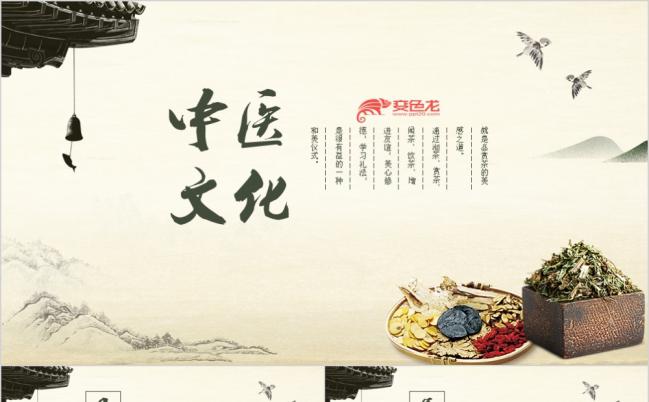 中医
文化
变色龙
www.ppt20.com
就是品赏茶的美
感之道。
通过沏茶、赏茶、
闻茶、饮茶、增
进友谊,美心修
德,学习礼法,
是很有益的一种
和美仪式。